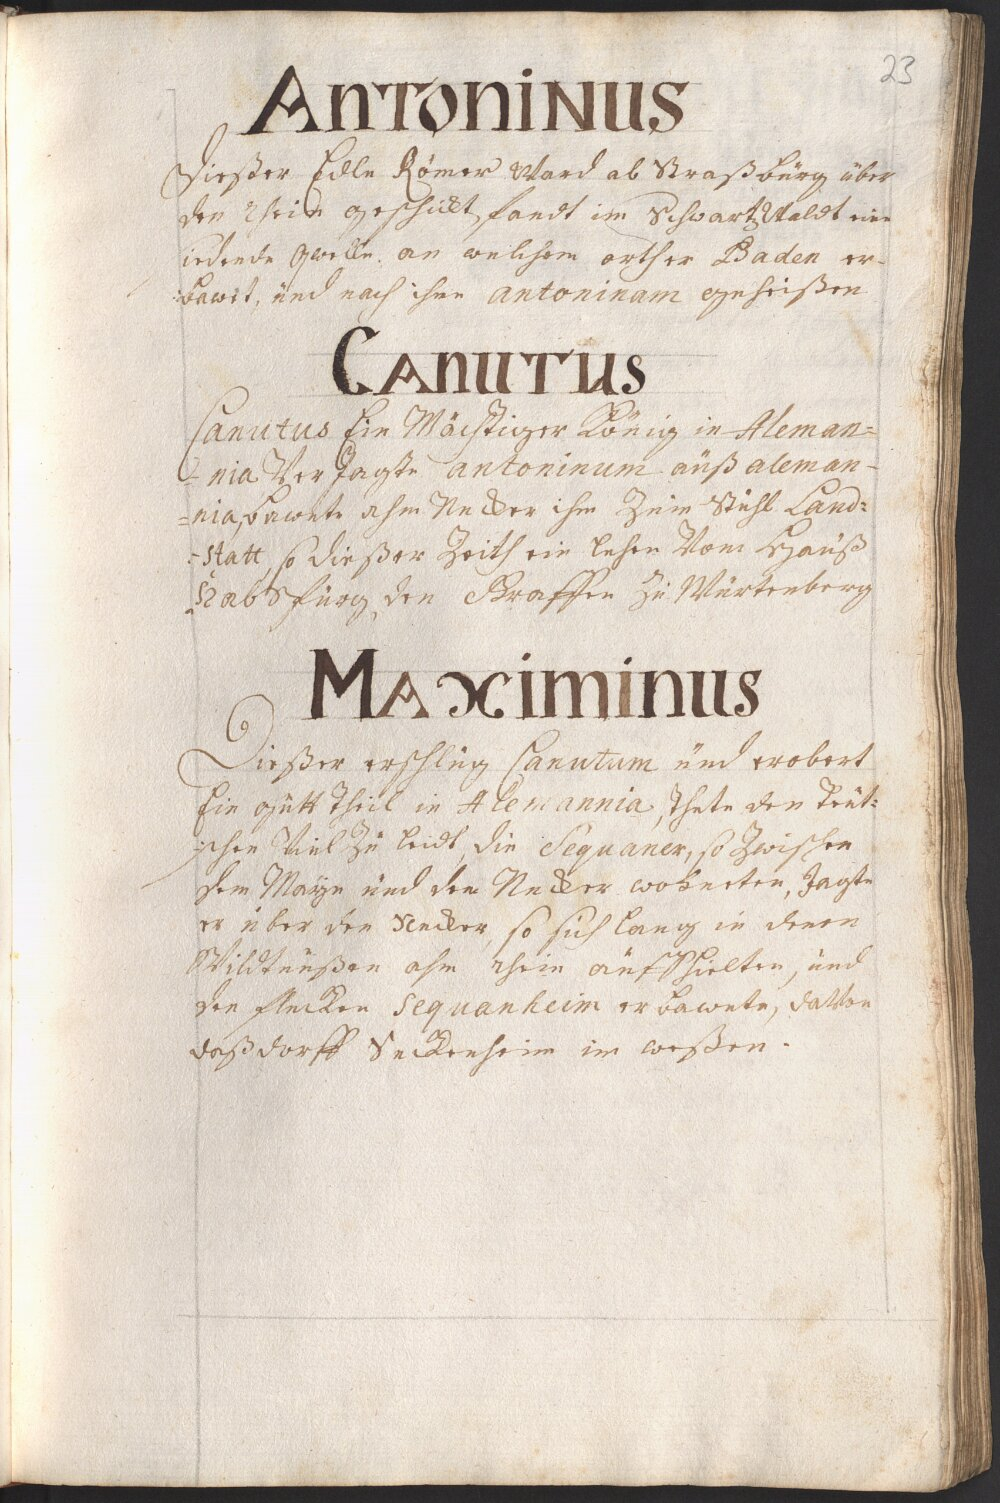 23
Antoninus
Dießer Edle Römer Ward ab Straßbürg über
den Rhein geschickt, fandt im SchwartzWaldt eine
siedende Qwelle. an welchem orth er Baden er-
:bawet, und nach ihme antoninam geheißen
Canutus
Canutus Ein Mächtiger König in Aleman=
=nia Ver Jagte antoninum auß aleman-
=nia, bawete ahm Necker ihm Zum Stuhl Land=
=statt, so dießer Zeith ein lehen Vom Hauß
Habspürg den Graffen Zu Würtenberg
Maximinus
Dießer erschlug Canutum und erobert
Ein gutt Theil in Alemannia, thete den Teut=
:schen Viel Zu leidt, die Sequaner, so Zwischen
dem Mayn und dem Necker wohneten, Jagte
er über den Necker, so sich lang in denen
Wildtnußen ahm Rhein auffhielten, und
den flecken Sequanheim erbawete, daVon
daß dorff Seckenheim im weßen.